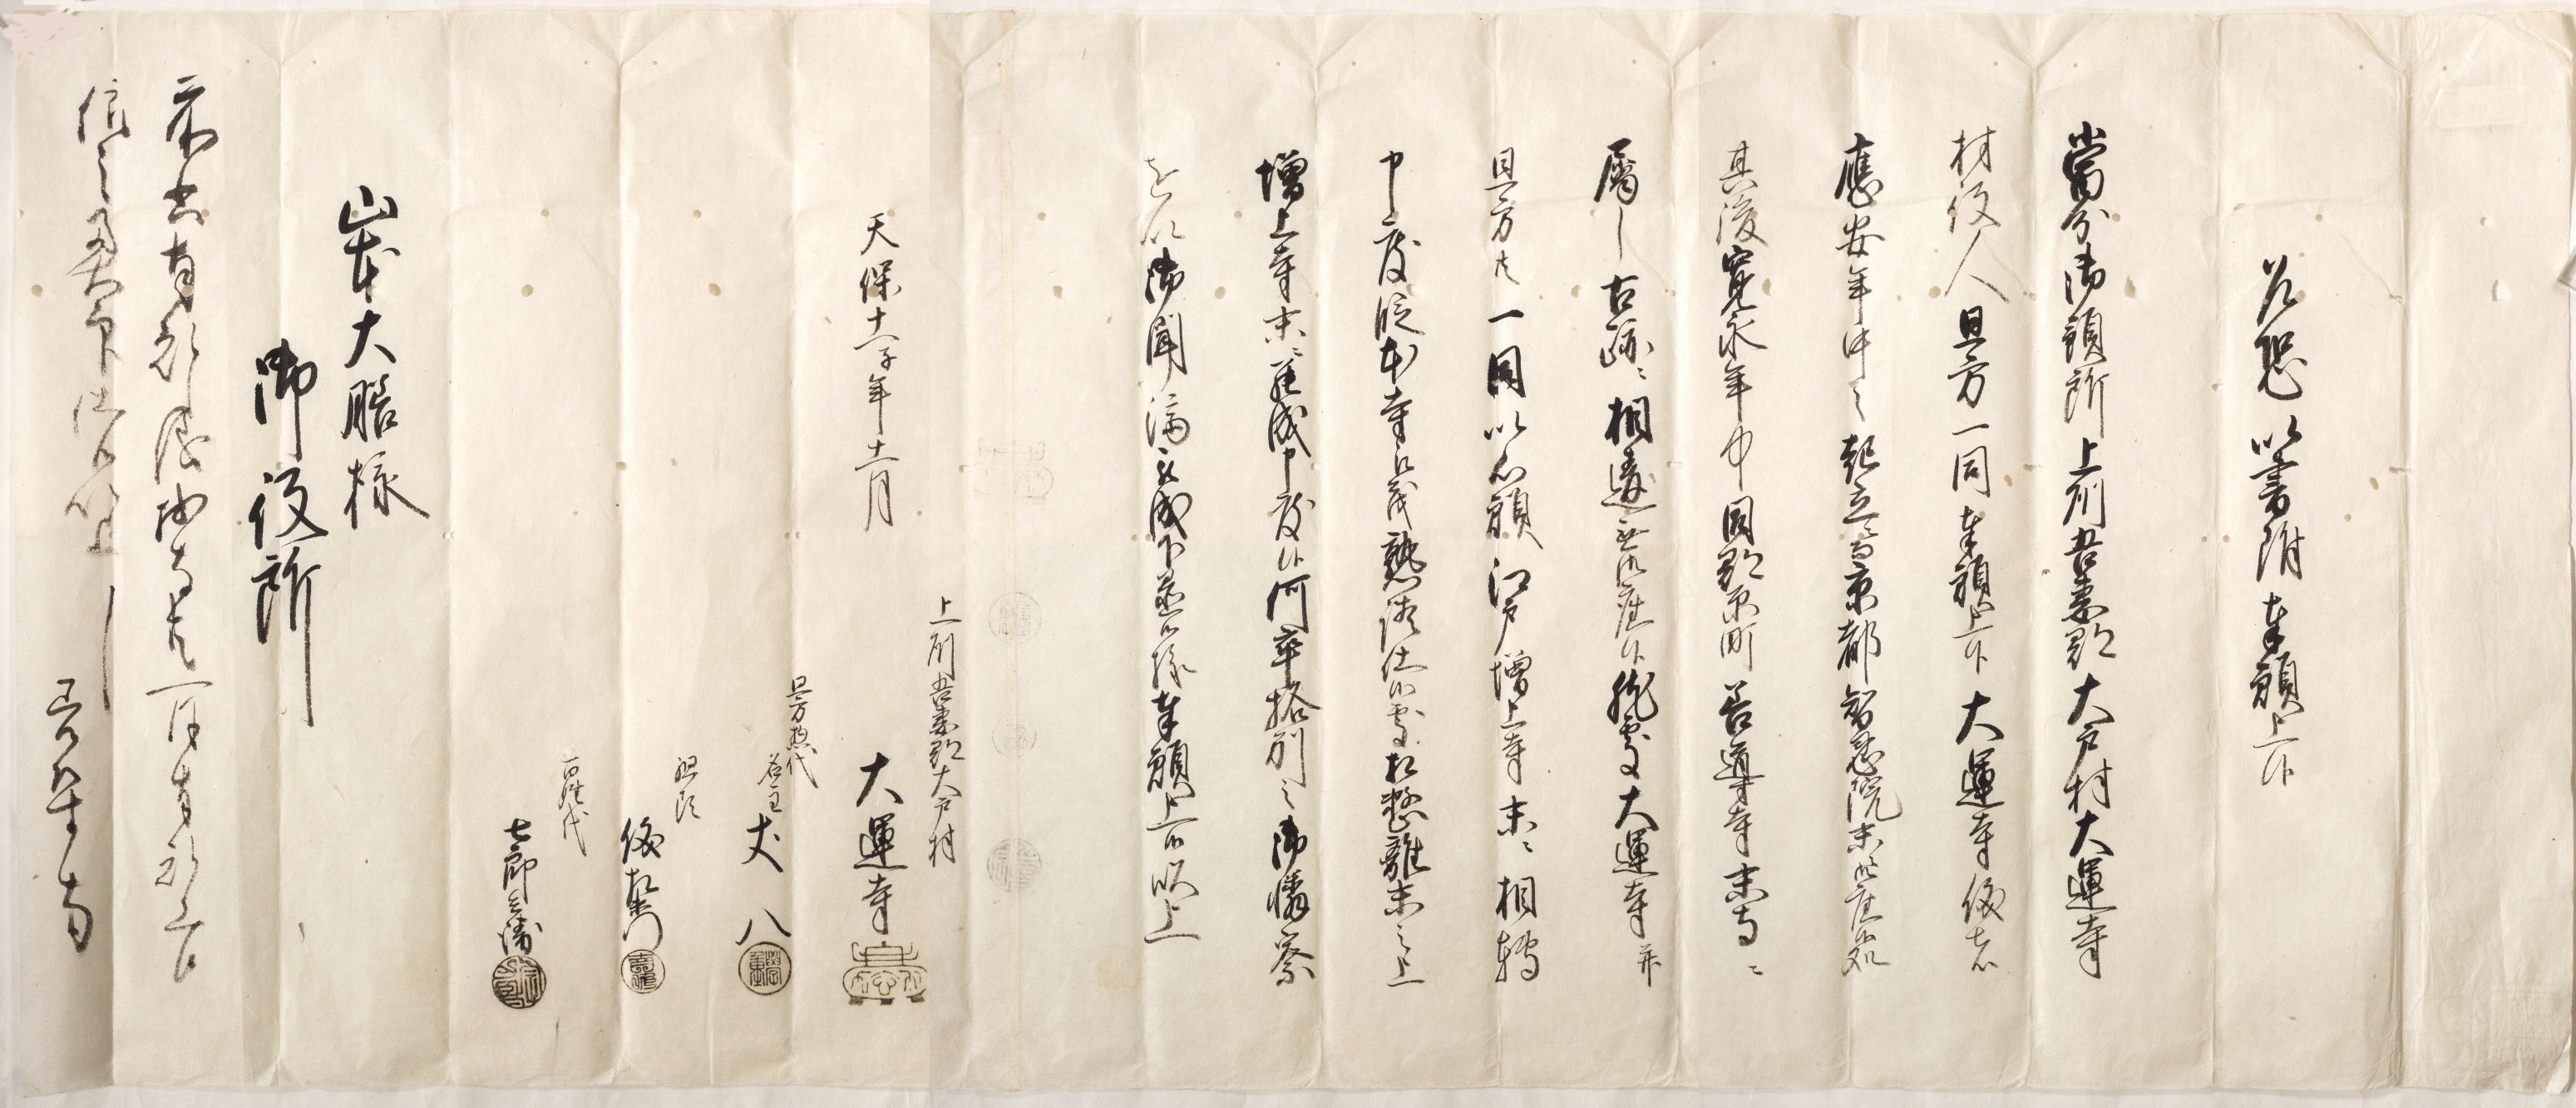 乍恐以書附奉願上候
當分御預所上州吾妻郡大戸村大運寺
村役人旦方一同奉願上候大運寺儀者
應安年中之起立ニ而京都智恩院末ニ御座候処
其後寛永年中同郡原町善導寺末寺ニ
属し古跡ニ相違無御座候然処大運寺并
旦方共一同以心願江戸増上寺末ニ相轉
申度段本寺江茂熟談仕候処相整離末之上
増上寺末ニ罷成申度候何卒格別之御憐察
を以御聞済被成下置候様奉願上候以上
上州吾妻郡大戸村
天保十一子年十一月
大運寺
旦方惣代
名主
丈八
組頭
儀左衛門
百姓代
七郎兵衛
山本大膳様
御役所